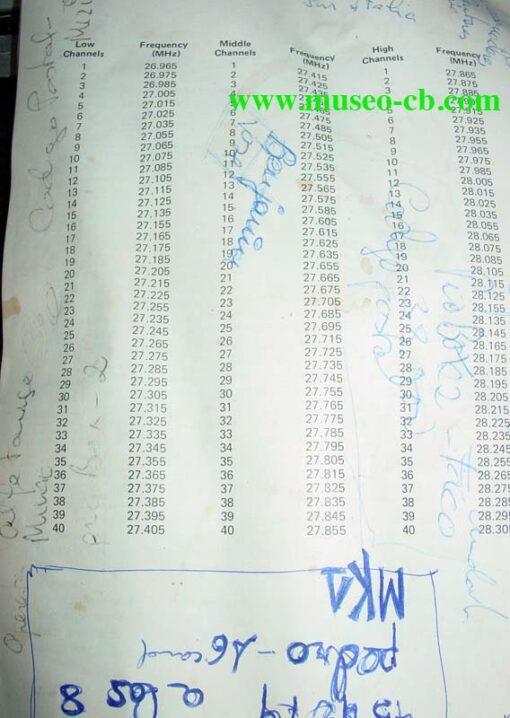 Low Channels Frequency (MHz) Middle Channels Frequency (MHz) High Channels Frequency (MHz)
1 26.965 1 27.415 1 27.865
2 26.975 2 27.425 2 27.875
3 26.985 3 27.435 3 27.885
4 27.005
www.museo-cb.com
5 27.015 27.915
6 27.025 6 27.475 6 27.925
7 27.035 7 27.485 7 27.935
8 27.055 8 27.505 8 27.955
9 27.065 9 27.515 9 27.965
10 27.075 10 27.525 10 27.975
11 27.085 11 27.535 11 27.985
12 27.105 12 27.555 12 28.005
13 27.115 13 27.565 13 28.015
14 27.125 14 27.575 14 28.025
15 27.135 15 27.585 15 28.035
16 27.155 16 27.605 16 28.055
17 27.165 17 27.615 17 28.065
18 27.175 18 27.625 18 28.075
19 27.185 19 27.635 19 28.085
20 27.205 20 27.655 20 28.105
21 27.215 21 27.665 21 28.115
22 27.225 22 27.675 22 28.125
23 27.255 23 27.705 23 28.155
24 27.235 24 27.685 24 28.135
25 27.245 25 27.695 25 28.145
26 27.265 26 27.715 26 28.165
27 27.275 27 27.725 27 28.175
28 27.285 28 27.735 28 28.185
29 27.295 29 27.745 29 28.195
30 27.305 30 27.755 30 28.205
31 27.315 31 27.765 31 28.215
32 27.325 32 27.775 32 28.225
33 27.335 33 27.785 33 28.235
34 27.345 34 27.795 34 28.245
35 27.355 35 27.805 35 28.255
36 27.365 36 27.815 36 28.265
37 27.375 37 27.825 37 28.275
38 27.385 38 27.835 38 28.285
39 27.395 39 27.845 39 28.295
40 27.405 40 27.855 40 28.30
Codigo Postal
MKD
pedro - 16
a las 8